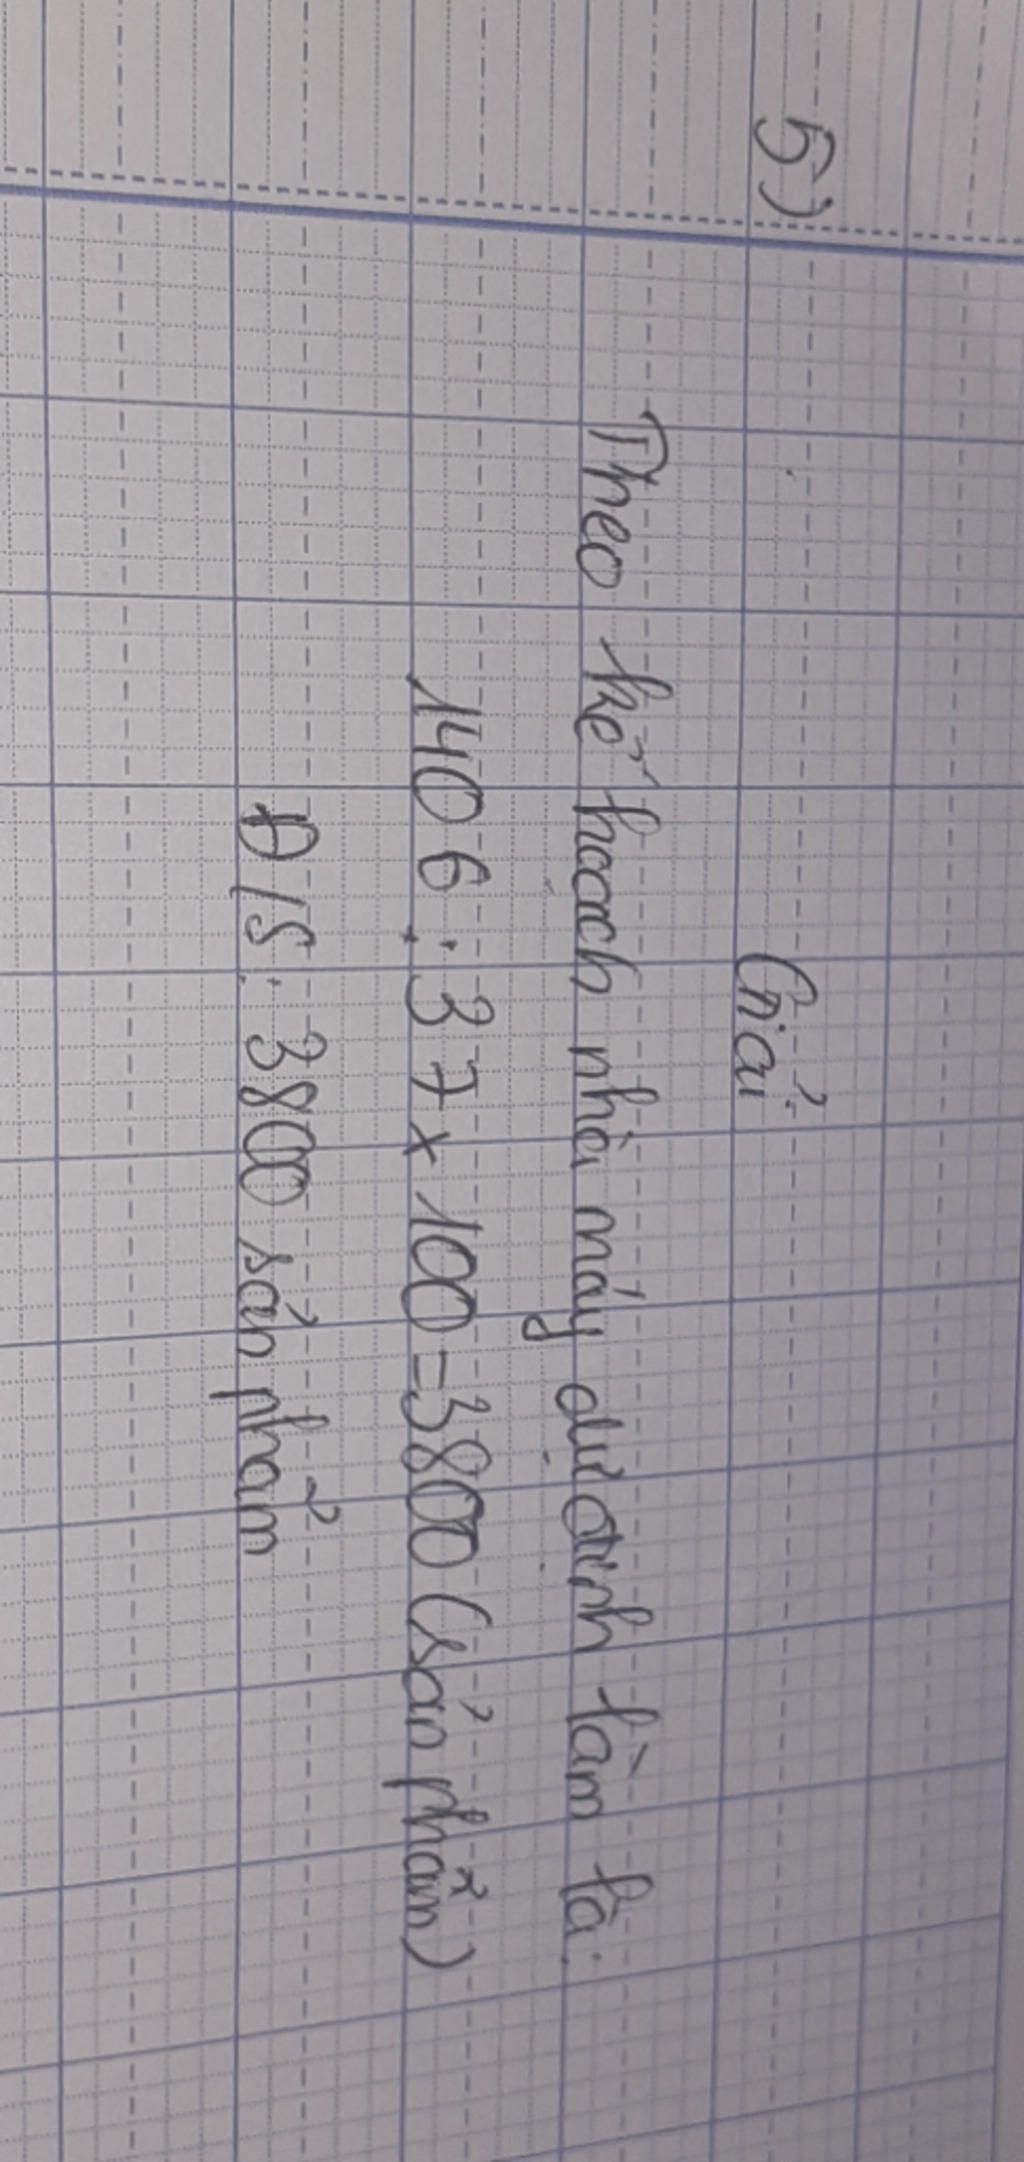 5)
Giải:
Theo kế hoạch nhà máy dự định làm là:
1406 : 37 x 100 = 3800 (sản phẩm)
Đ/S: 3800 sản phẩm